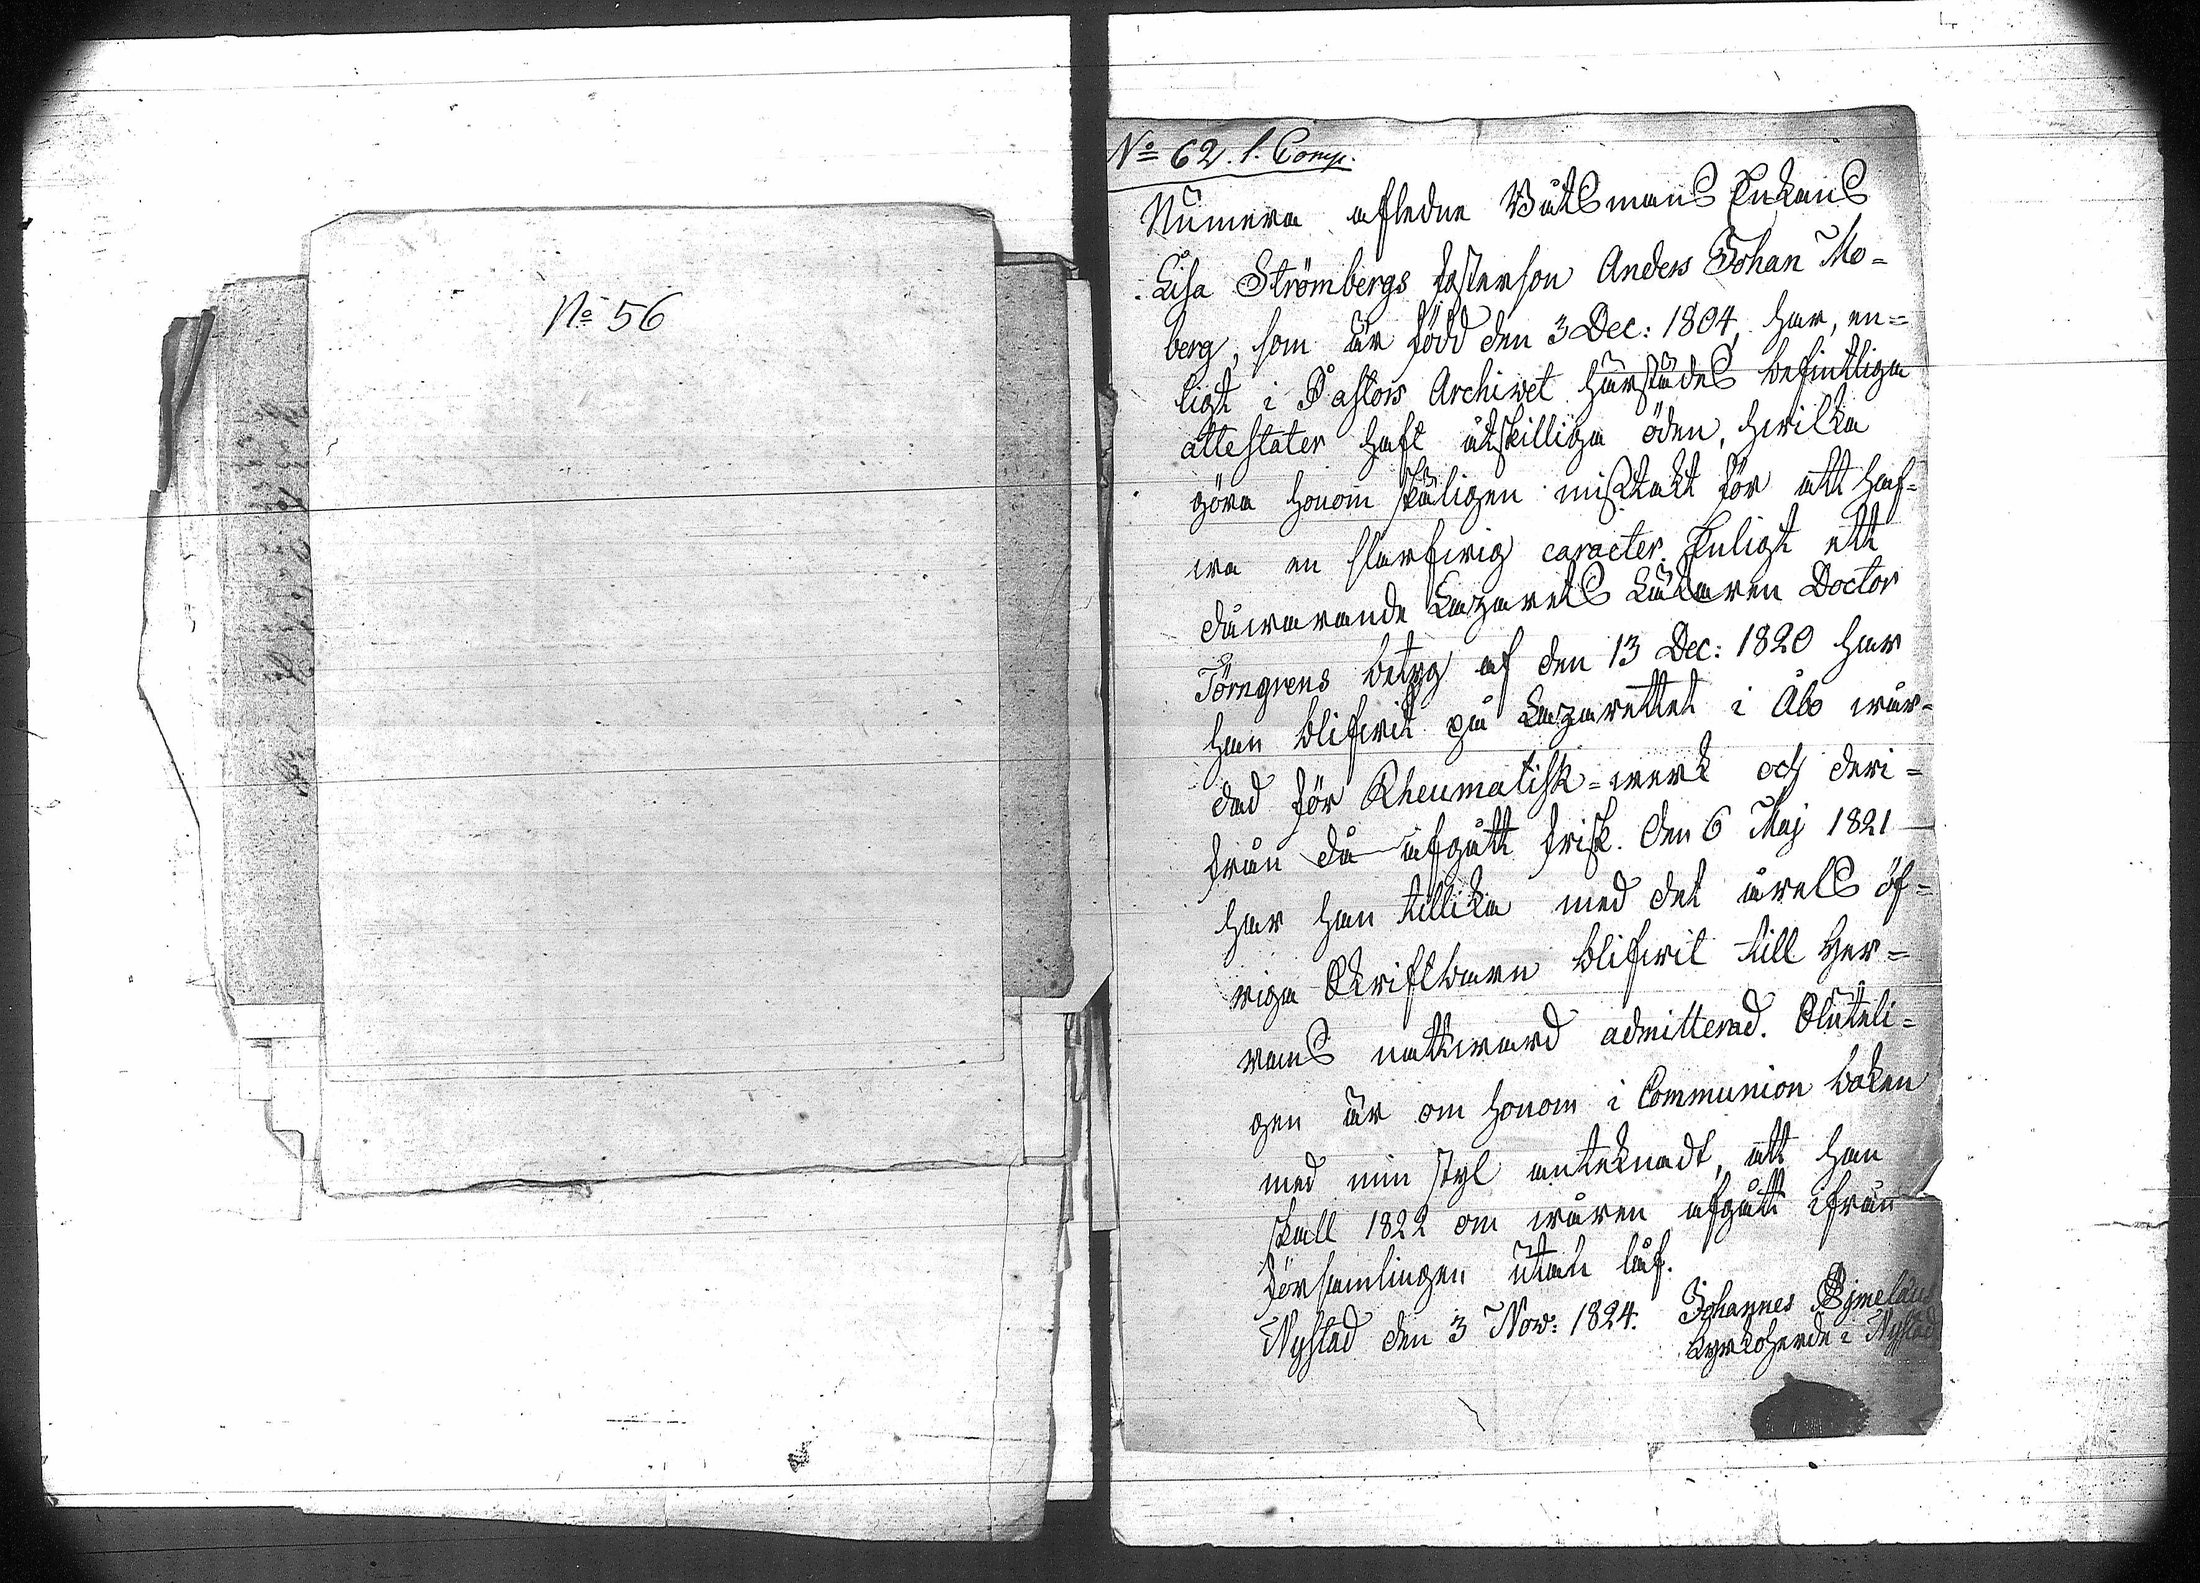 No 56
No 62. 1. Comp.
Numera afledne Båtsmans Enkans
Lisa Strömbergs fosterson Anders Johan Mo=
berg, som är född den 3 Dec: 1804, har, en=
ligt i Pastors Archivet härstädes befintliga
attestater haft åtskilliga öden, hvilka
göra honom skäligen misstänkt för att haf=
wa en slarfwig caracter. Enligt ett
dåwarande Lazarets Läkaren Doctor
Törngrens betyg af den 13 Dec: 1820 har
han blifwit på Lazarettet i Åbo wår=
dad för Rheumatisk=werk och deri=
från då afgått frisk. Den 6 Maj 1821
har han tillika med det årets öf=
riga Skriftbarn blifwit till Her=
rans nattward admitterad. Sluteli=
gen är om honom i Communion boken
med min styl anteknadt, att han
skall 1822 om wåren afgått ifrån
församlingen utan låf.
Nystad den 3 Nov: 1824. Johannes
Kyrkoherde i Nystad